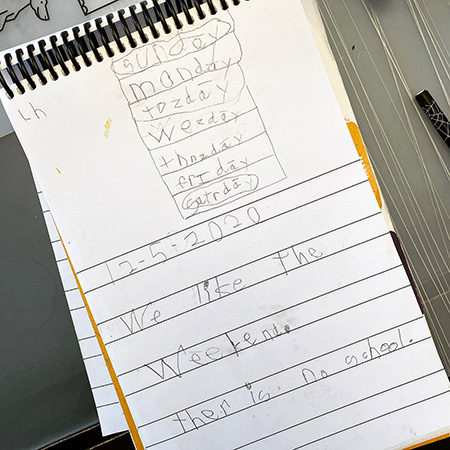 Lh
sunday
manday
tozdāy
Wezdāy
thrzdāy
fri dāy
satrdāy
12-5-2020
We like the
Weekend.
ther is no school.